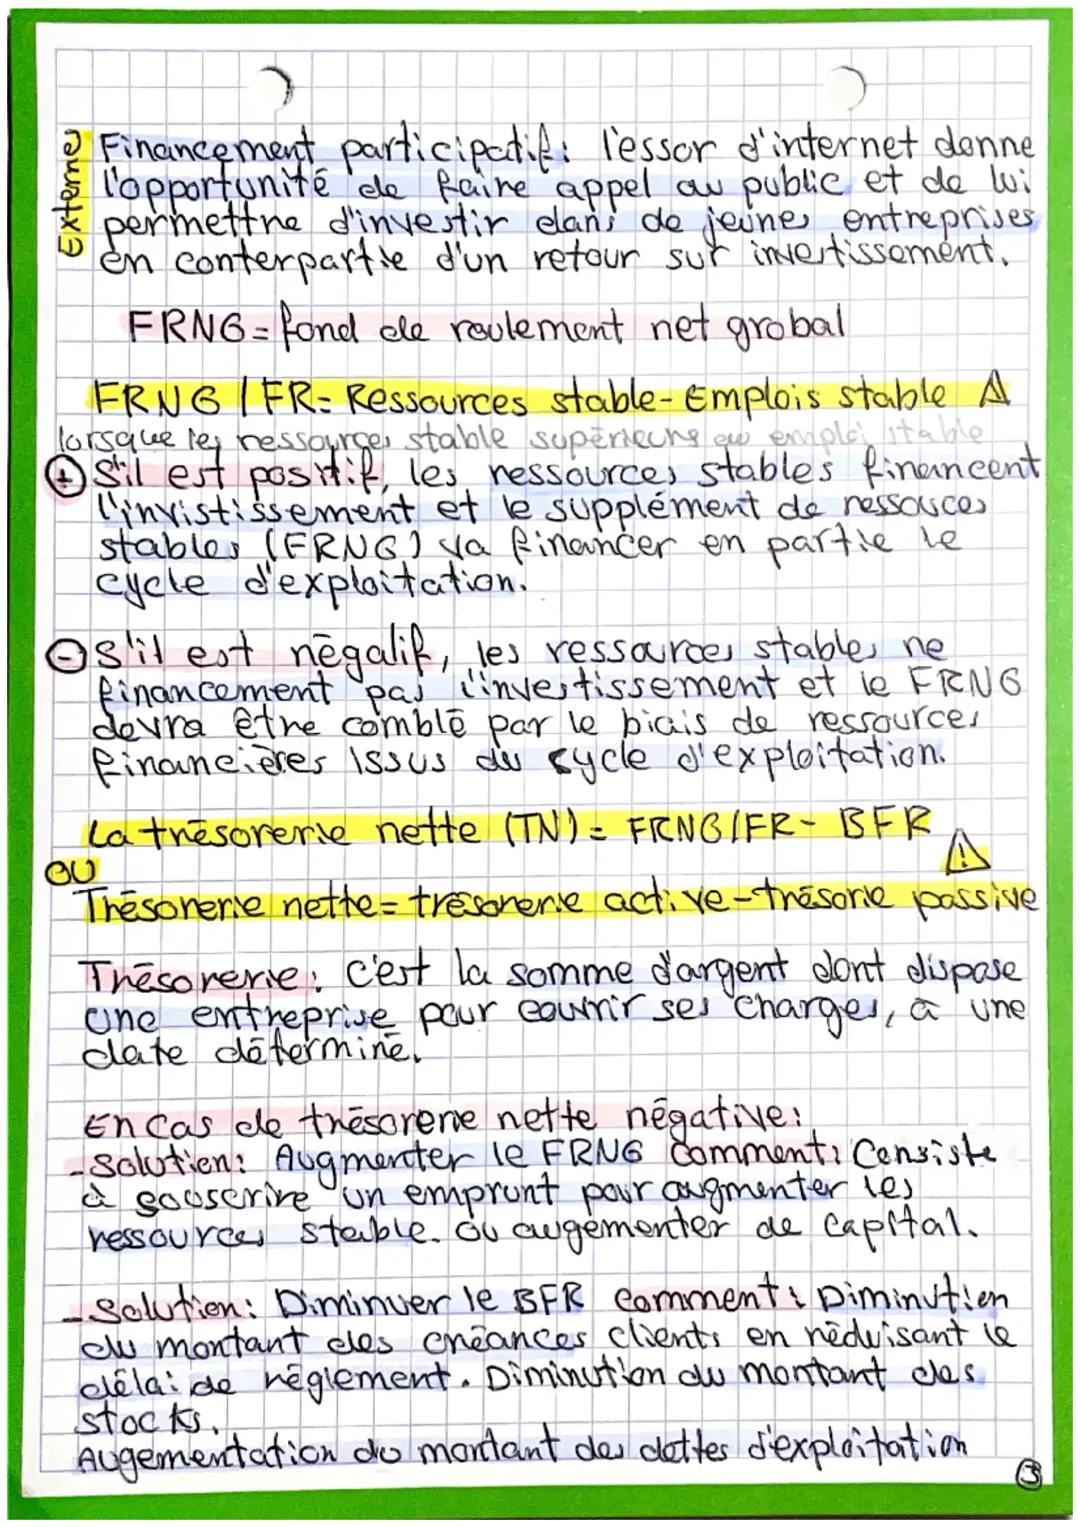 Externe
Financement participatif: l'essor d'internet donne
l'opportunité de faire appel au public et de lui
permettre d'investir dans de jeunes entreprises
en conterpartie d'un retour sur invertissement.
FRNG = fond de roulement net grobal
FRNG / FR = Ressources stable - Emplois stable ⚠
lorsque les ressources stable supérieure au emploi stable
+ S'il est positif, les ressources stables financent
l'invistissement et le supplément de ressources
stables (FRNG) va financer en partie le
cycle d'exploitation.
- S'il est négatif, les ressources stables ne
financement pas l'investissement et le FRNG
devra être comblé par le biais de ressources
financières issus du cycle d'exploitation.
La trésorerie nette (TN) = FRNG/FR - BFR
OU ⚠
Trésorerie nette = trésorerie active - trésorie passive
Trésorerie: C'est la somme d'argent dont dispose
une entreprise pour couvrir ses charges, à une
date déterminé.
En cas de trésorerie nette négative:
- Solution: Augmenter le FRNG Comment: Consiste
à souscrire un emprunt pour augmenter les
ressources stable. Ou augementer de capital.
- Solution: Diminuer le BFR Comment: Diminution
du montant des créances clients en réduisant le
délai de réglement. Diminution du montant des
stocks.
Augementation du montant des dettes d'exploitation
3